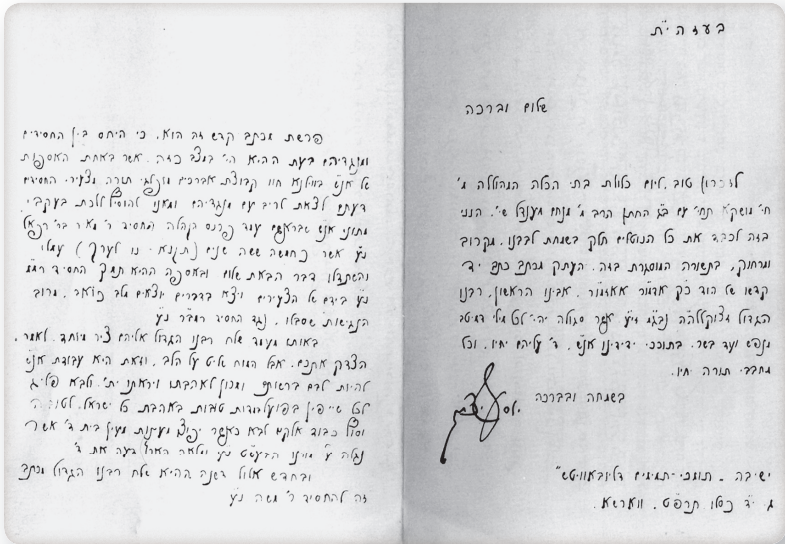 בעזהי״ת
שלום וברכה
לזכרון טוב, ליום כלולת בתי הכלה המהוללה מ׳
חי׳ מושקא תחי׳ עם ב״ג החתן הרב מ׳ מנחם מענדל שי׳. הנני
בזה לכבד את כל הנוטלים חלק בשמחת לבבנו, מקרוב
ומרחוק, בתשורה המוסגרת בזה, העתק מכתב כתב יד
קדשו של הוד כ״ק אדמו״ר אאזמו״ר, אבינו הראשון, רבנו
הגדול זצוקללה״ה נבג״מ זי״ע אשר סגולה יהי׳ לכל מילי דמיטב
מנפש ועד בשר, בתוככי ידידינו אנ״ש, ד׳ עליהם יחיו, וכל
מחבבי תורה יחיו.
בשמחה ובברכה
ישיבה - תומכי-תמימים דליובאוויטש״
ג׳ י״ד כסלו תרפ״ט. ווארשא.
פרשת מכתב קדש זה הוא, כי היחס בין החסידים
ומנגדיהם בעת ההיא הי׳ במצב כזה, אשר באחת האספות
של אנ״ש בווילנא חוו קבוצת אברכים מופלגי תורה מצעירי החסידים
דעתם לצאת לריב עם מנגדיהם ומאנו להוסיף ללכת בעקבי
מתוני אנ״ש שבראשם עמד פרנס הקהלה החסיד ר׳ מאיר בר׳ רפאל
נ״ע אשר כחמשה ששה שנים (תקנ״א - נז לערך) עמלו
והשתדלו דבר הבאת שלום ובאספה ההיא תמך החסיד
נ״ע בידם של הצעירים ויצא בדברים יוצאים מלב כואב, מרוב
הנגישות שסבלו, נגד החסיד נ״ע
באותו מעמד שלח רבנו הגדול אליהם ציר מיוחד, לאמר,
הצדק אתכם, אבל המוח שליט על הלב, וזאת היא עבודת אנ״ש
להיות לבם ברשותם ומכון לאהבתו ויראתו ית׳, ולבא פליג
לכל שייפין בפועל בעבודת באהבת כל ישראל, לטובה
וסוף כבוד אלקים לבא כאשר יפוצו מעינות מעין בית ד׳ אשר
נגלה ע״י מורינו הבעש״ט נ״ע ומלאה הארץ דעה את ד׳
ובחדש אלול דשנה ההיא שלח רבנו הגדול מכתב
זה להחסיד ר׳ משה נ״ע